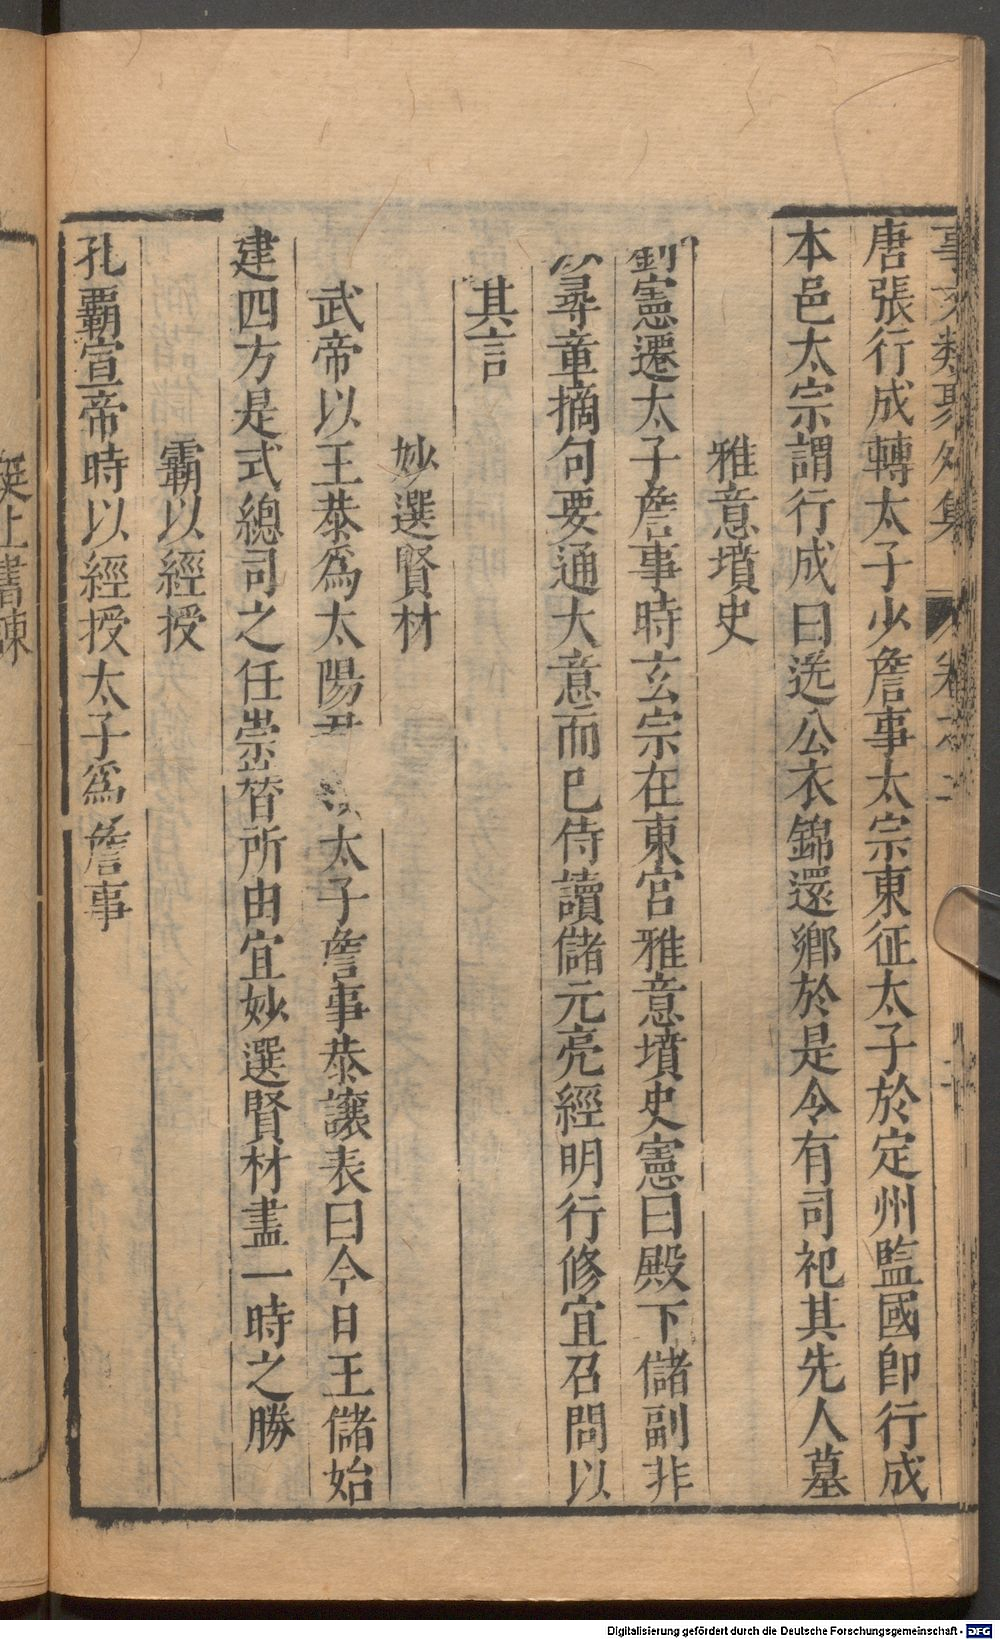 事文類聚外集 卷之二
唐張行成轉太子少詹事太宗東征太子於定州監國卽行成
本邑太宗謂行成曰送公衣錦還鄉於是令有司祀其先人墓
雅意墳史
劉憲遷太子詹事時玄宗在東宮雅意墳史憲曰殿下儲副非
尋章摘句要通大意而已侍讀儲元亮經明行修宜召問以
其言
妙選賢材
武帝以王恭爲太陽尹 太子詹事恭讓表曰今日王儲始
建四方是式總司之任崇替所由宜妙選賢材盡一時之勝
霸以經授
孔霸宣帝時以經授太子爲詹事
上書諫
Digitalisierung gefördert durch die Deutsche Forschungsgemeinschaft - DFG